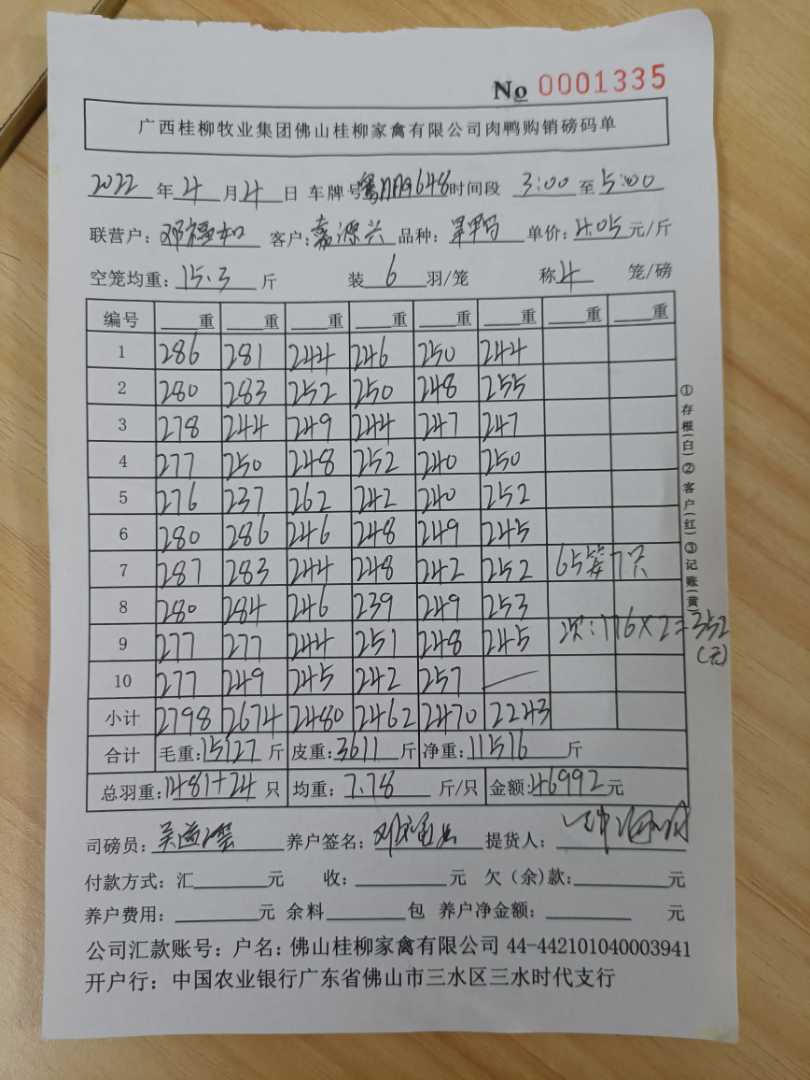 No 0001335
广西桂柳牧业集团佛山桂柳家禽有限公司肉鸭购销磅码单
2022 年 4 月 4 日 车牌号 时间段 3:00 至 5:00
联营户: 邓 和 客户: 嘉源兴 品种: 单价: 4.05 元/斤
空笼均重: 15.3 斤 装 6 羽/笼 称 4 笼/磅
编号 重 重 重 重 重 重 重 重
1 286 281 244 246 250 244
2 280 283 252 250 248 255
3 278 244 249 244 247 247
4 277 250 248 252 240 250
5 276 237 262 242 240 252
6 280 286 246 248 249 245
7 287 283 244 248 242 252 65笼7只
8 280 284 246 239 249 253
9 277 277 244 251 248 245 176×2=352
(元)
10 277 249 245 242 257 —
小计 2798 2674 2480 2462 2470 2243
合计 毛重: 15127 斤 皮重: 3611 斤 净重: 11516 斤
总羽重: 1481+24 只 均重: 7.78 斤/只 金额: 46992 元
司磅员: 养户签名: 提货人:
付款方式: 汇 元 收: 元 欠(余)款: 元
养户费用: 元 余料 包 养户净金额: 元
公司汇款账号: 户名: 佛山桂柳家禽有限公司 44-442101040003941
开户行: 中国农业银行广东省佛山市三水区三水时代支行
①存根(白)②客户(红)③记账(黄)